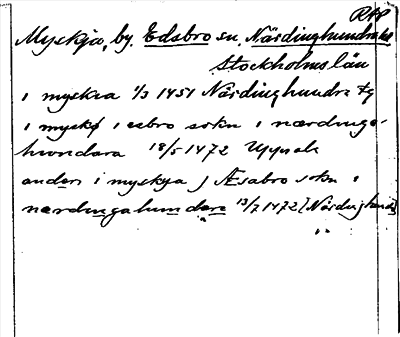 RAP
Myskja, by. Edsbro sn. Närdinghundra hd
Stockholms län
i myskia 1/3 1451 Närdinghundra
i myskø i esbro sokn i nærdinga-
hundara 18/5 1472 Uppsala
anders i myskya j Æsabro sokn i
nærdingahundare 13/7 1472 [Närdinghundra]